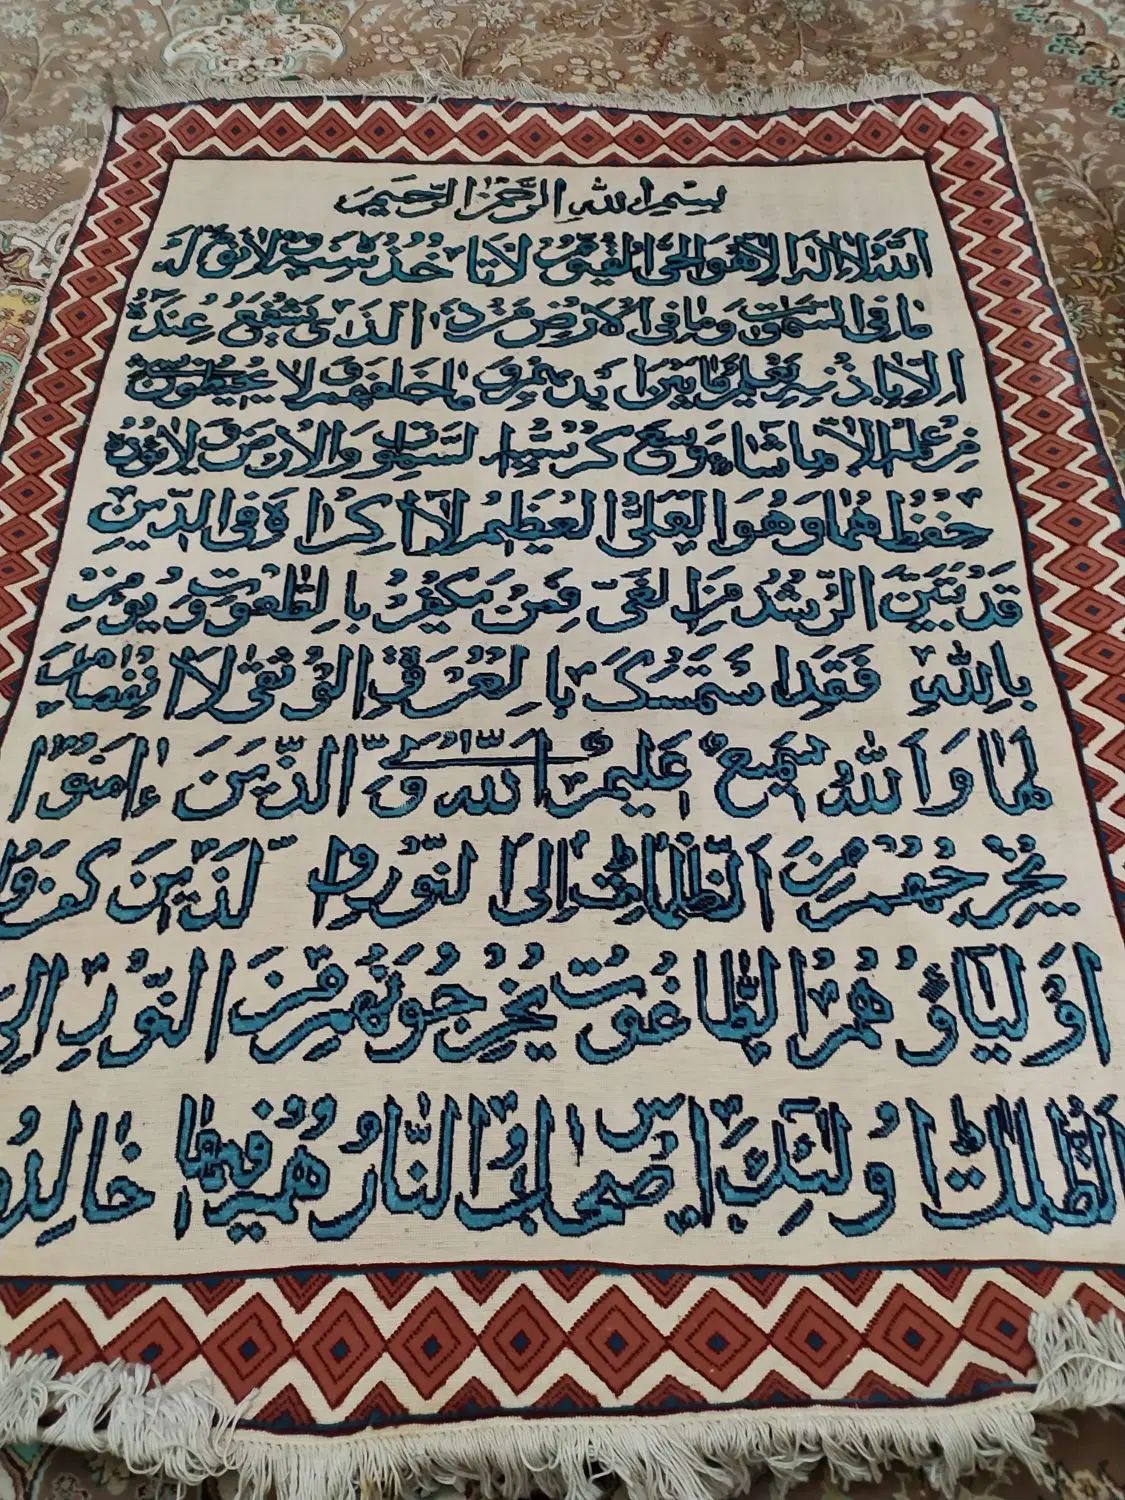 بسم الله الرحمن الرحیم
الله لا اله الا هو الحی القیوم لا تأخذه سنة ولا نوم له
ما فی السموات وما فی الارض من ذا الذی یشفع عنده
الا باذنه یعلم ما بین ایدیهم و ما خلفهم ولا یحیطون بشیء
من علمه الا بما شاء وسع کرسیه السموات والارض ولا یؤده
حفظهما وهو العلی العظیم لا اکراه فی الدین
قد تبین الرشد من الغی فمن یکفر بالطاغوت و یؤمن
بالله فقد استمسک بالعروة الوثقی لا انفصام
لها والله سمیع علیم الله ولی الذین ءامنوا
یخرجهم من الظلمات الی النور والذین کفروا
اولیاؤهم الطاغوت یخرجونهم من النور الی
الظلمات اولئک اصحاب النار هم فیها خالدو